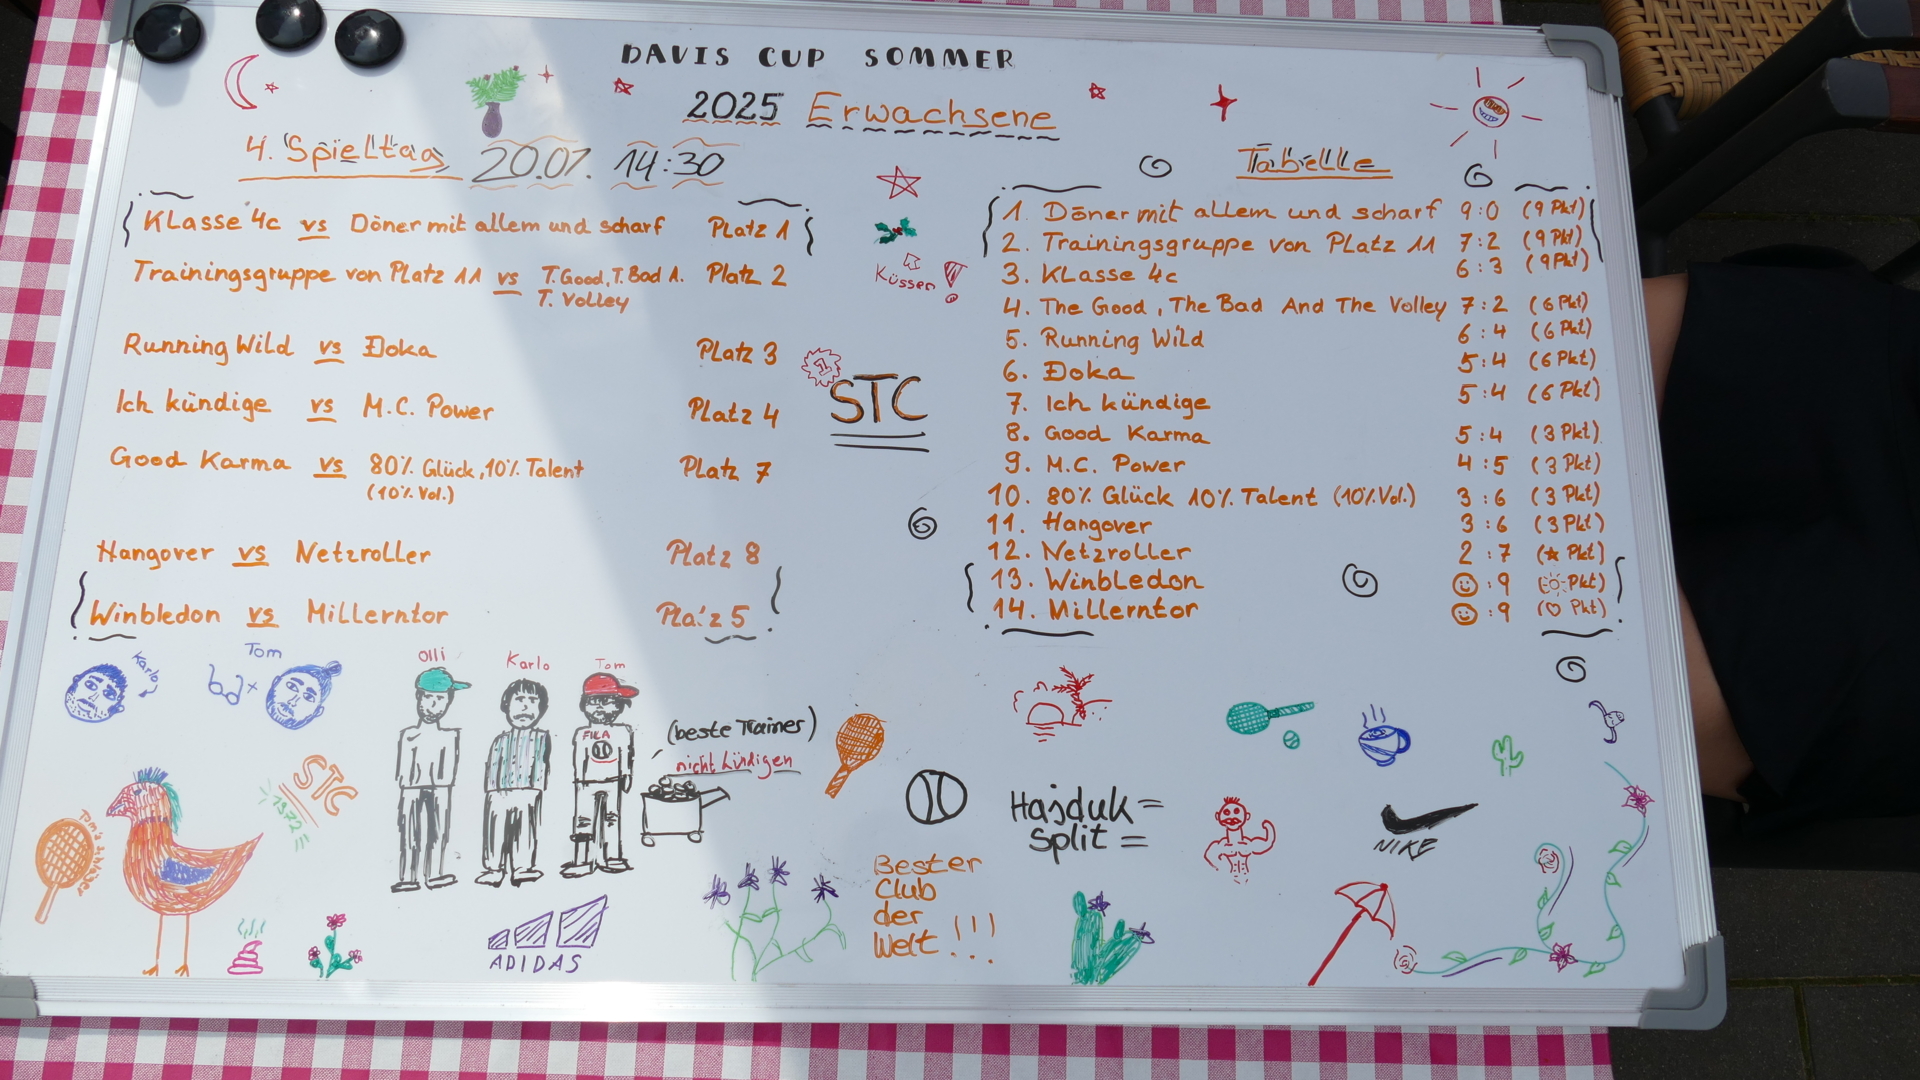 DAVIS CUP SOMMER
2025 Erwachsene
4. Spieltag 20.07. 14:30
Klasse 4c vs Döner mit allem und scharf Platz 1
Trainingsgruppe von Platz 11 vs T. Good, T. Bad A. Platz 2
T. Volley
Running Wild vs Đoka Platz 3
Ich kündige vs M.C. Power Platz 4
Good Karma vs 80% Glück, 10% Talent Platz 7
(10% Vol.)
Hangover vs Netzroller Platz 8
Winbledon vs Millerntor Platz 5
Küssen
1
STC
Tabelle
1. Döner mit allem und scharf 9:0 (9 Pkt)
2. Trainingsgruppe von Platz 11 7:2 (9 Pkt)
3. Klasse 4c 6:3 (9 Pkt)
4. The Good, The Bad And The Volley 7:2 (6 Pkt)
5. Running Wild 6:4 (6 Pkt)
6. Đoka 5:4 (6 Pkt)
7. Ich kündige 5:4 (6 Pkt)
8. Good Karma 5:4 (3 Pkt)
9. M.C. Power 4:5 (3 Pkt)
10. 80% Glück 10% Talent (10% Vol.) 3:6 (3 Pkt)
11. Hangover 3:6 (3 Pkt)
12. Netzroller 2:7 (★ Pkt)
13. Winbledon ☺:9 (☼ Pkt)
14. Millerntor ☺:9 (♡ Pkt)
Karlo
Tom
Olli
Karlo
Tom
FILA
(beste Trainer)
nicht kündigen
STC
1972
Tom's
ADIDAS
Bester
Club
der
Welt!!!
Hajduk =
Split =
NIKE